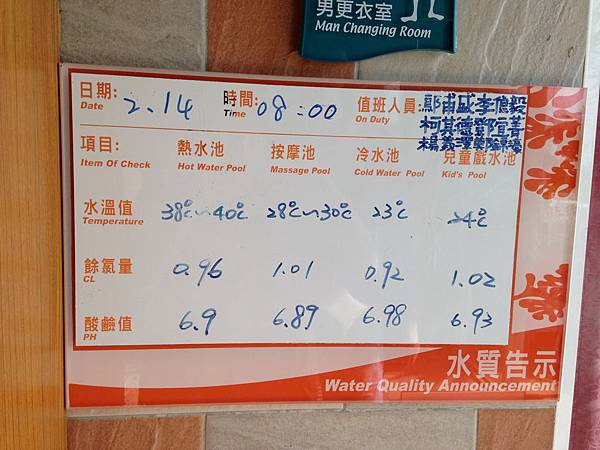 男更衣室
Man Changing Room
日期: 2.14 時間: 08:00 值班人員:
Date Time On Duty
項目: 熱水池 按摩池 冷水池 兒童戲水池
Item Of Check Hot Water Pool Massage Pool Cold Water Pool Kid's Pool
水溫值 38℃~40℃ 28℃~30℃ 23℃ 24℃
Temperature
餘氯量 0.96 1.01 0.92 1.02
CL
酸鹼值 6.9 6.89 6.98 6.93
PH
水質告示
Water Quality Announcement